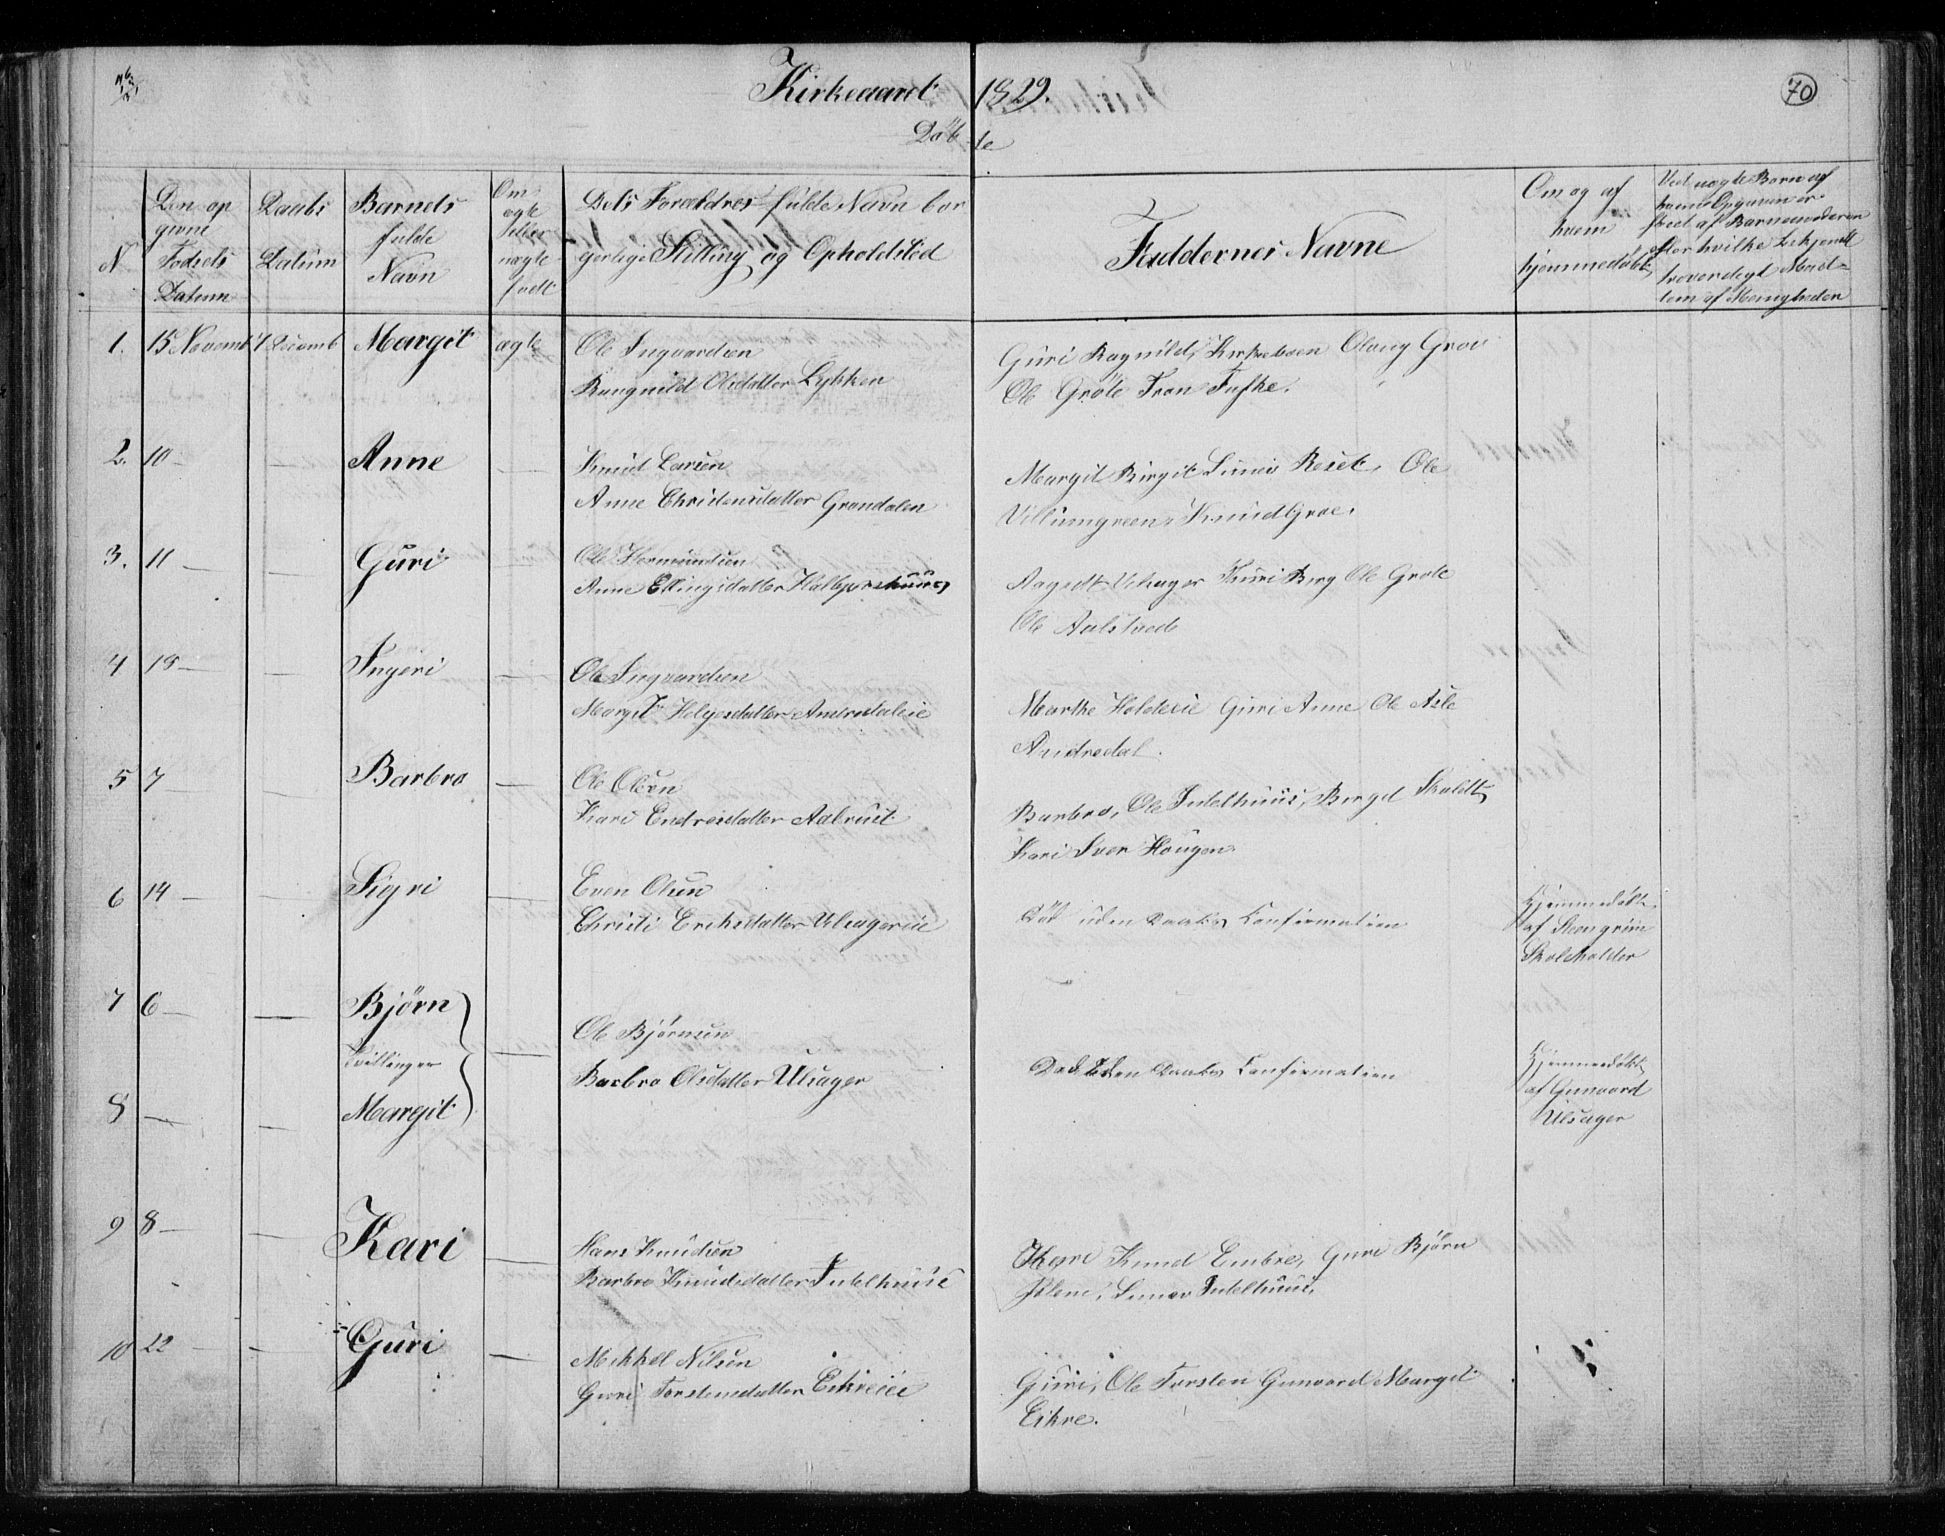 Kirkeaaret 1829.
70
Døbte
N
Den op
givne
Fødsels
Datum
Daabs
Datum
Barnets
fulde
Navn
Om
ægte
eller
uægte
født
Dets Forældres fulde Navn bor
gerlige Stilling og Opholdsted
Faddernes Navne
Om og af
hvem
hjemmedøbt
Ved uægte Børn af
hvem Opgaven er
skeet af Barnemoderen
eller hvilke bekjendt
troværdigt Medl-
lem af Menigheden
1. 15 Novemb 7 Decemb Margit ægte Ole Ingvardsen
Rangnild Olsdatter Lykken
Guri Ragnild, Kirkebøen Olaug Grøv
Ole Grøte Iran Tufte.
2. 10 — — Anne — Knud Larsen
Anne Christensdatter Grøndalen
Margit Birgit Simen Roset, Ole
Villumgreen, Knud Groe.
3. 11 — — Guri — Ole Hermundsen
Anne Ellingsdatter Halbjørshuus
Aagodt Ulsager Kuri Berg Ole Grøte
Ole Aalstvedt
4 18 — — Ingeri — Ole Ingvardsen
Margit Helgesdatter Andredaleie
Marthe Holdeie Guri Anne Ole Asle
Andredal.
5 7 — — Barbro — Ole Olsen
Kari Endresdatter Aalrust
Barbro, Ole Intelhuus, Bergit Skoldt
Kari Iver Haugen
6 14 — — Sigri — Even Olsen
Christi Eriksdatter Ulsagereie
Død uden Daabs Confirmation
Hjemmedøbt
af Steengrim
Skoleholder
7 6 — — Bjørn
Tvillinger — Ole Bjørnsen
Barbro Olsdatter Ulsager
Død Uden Daabs Confirmation
Hjemmedøbt
af Gunvord
Ulsager
8 — — Margit
9 8 — — Kari — Hans Knudsen
Barbro Knudsdatter Intelhuus
Knud Embre, Guri Bjørn
Simen Intelhuus.
10 22 — — Guri — Mikkel Nilsen
Guri Torstensdatter Eikreiei
Guri, Ole Torsten Gunvord Margit
Eikre.